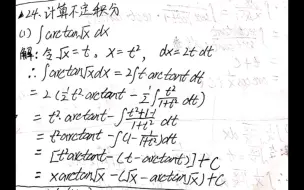 ▲24.计算不定积分
(1) ∫arctan√x dx
解: 令√x = t, x = t², dx = 2t dt
∴ ∫arctan√x dx = 2∫t arctant dt
= 2 (½t² arctant - ½∫t²/(1+t²) dt)
= t² arctant - ∫(t²+1-1)/(1+t²) dt
= t² arctant - ∫(1 - 1/(1+t²)) dt
= [t² arctant - (t - arctant)] + C
= x arctan√x - (√x - arctan√x) + C